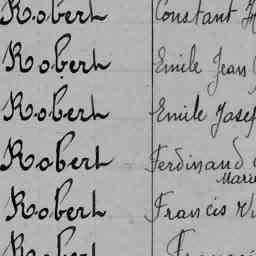 Robert Constant
Robert Emile Jean
Robert Emile Josef
Robert Ferdinand
Marie
Robert Francis
Robert